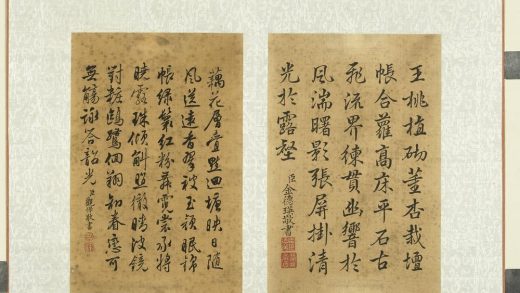 王桃植砌董杏栽壇
帳合蘿高床平石古
飛流界練貫幽響於
風湍曙影張屏掛清
光於露壑
臣金德瑛敬書
藕花層疊點回塘映日隨
風送遠香翠被玉顏眠錦
帳綠紅粉霓裳承將
曉露珠傾斛照徹晴波鏡
對粧鷗鷺徊翔知春戀可
無觴詠答韶光
臣觀保敬書